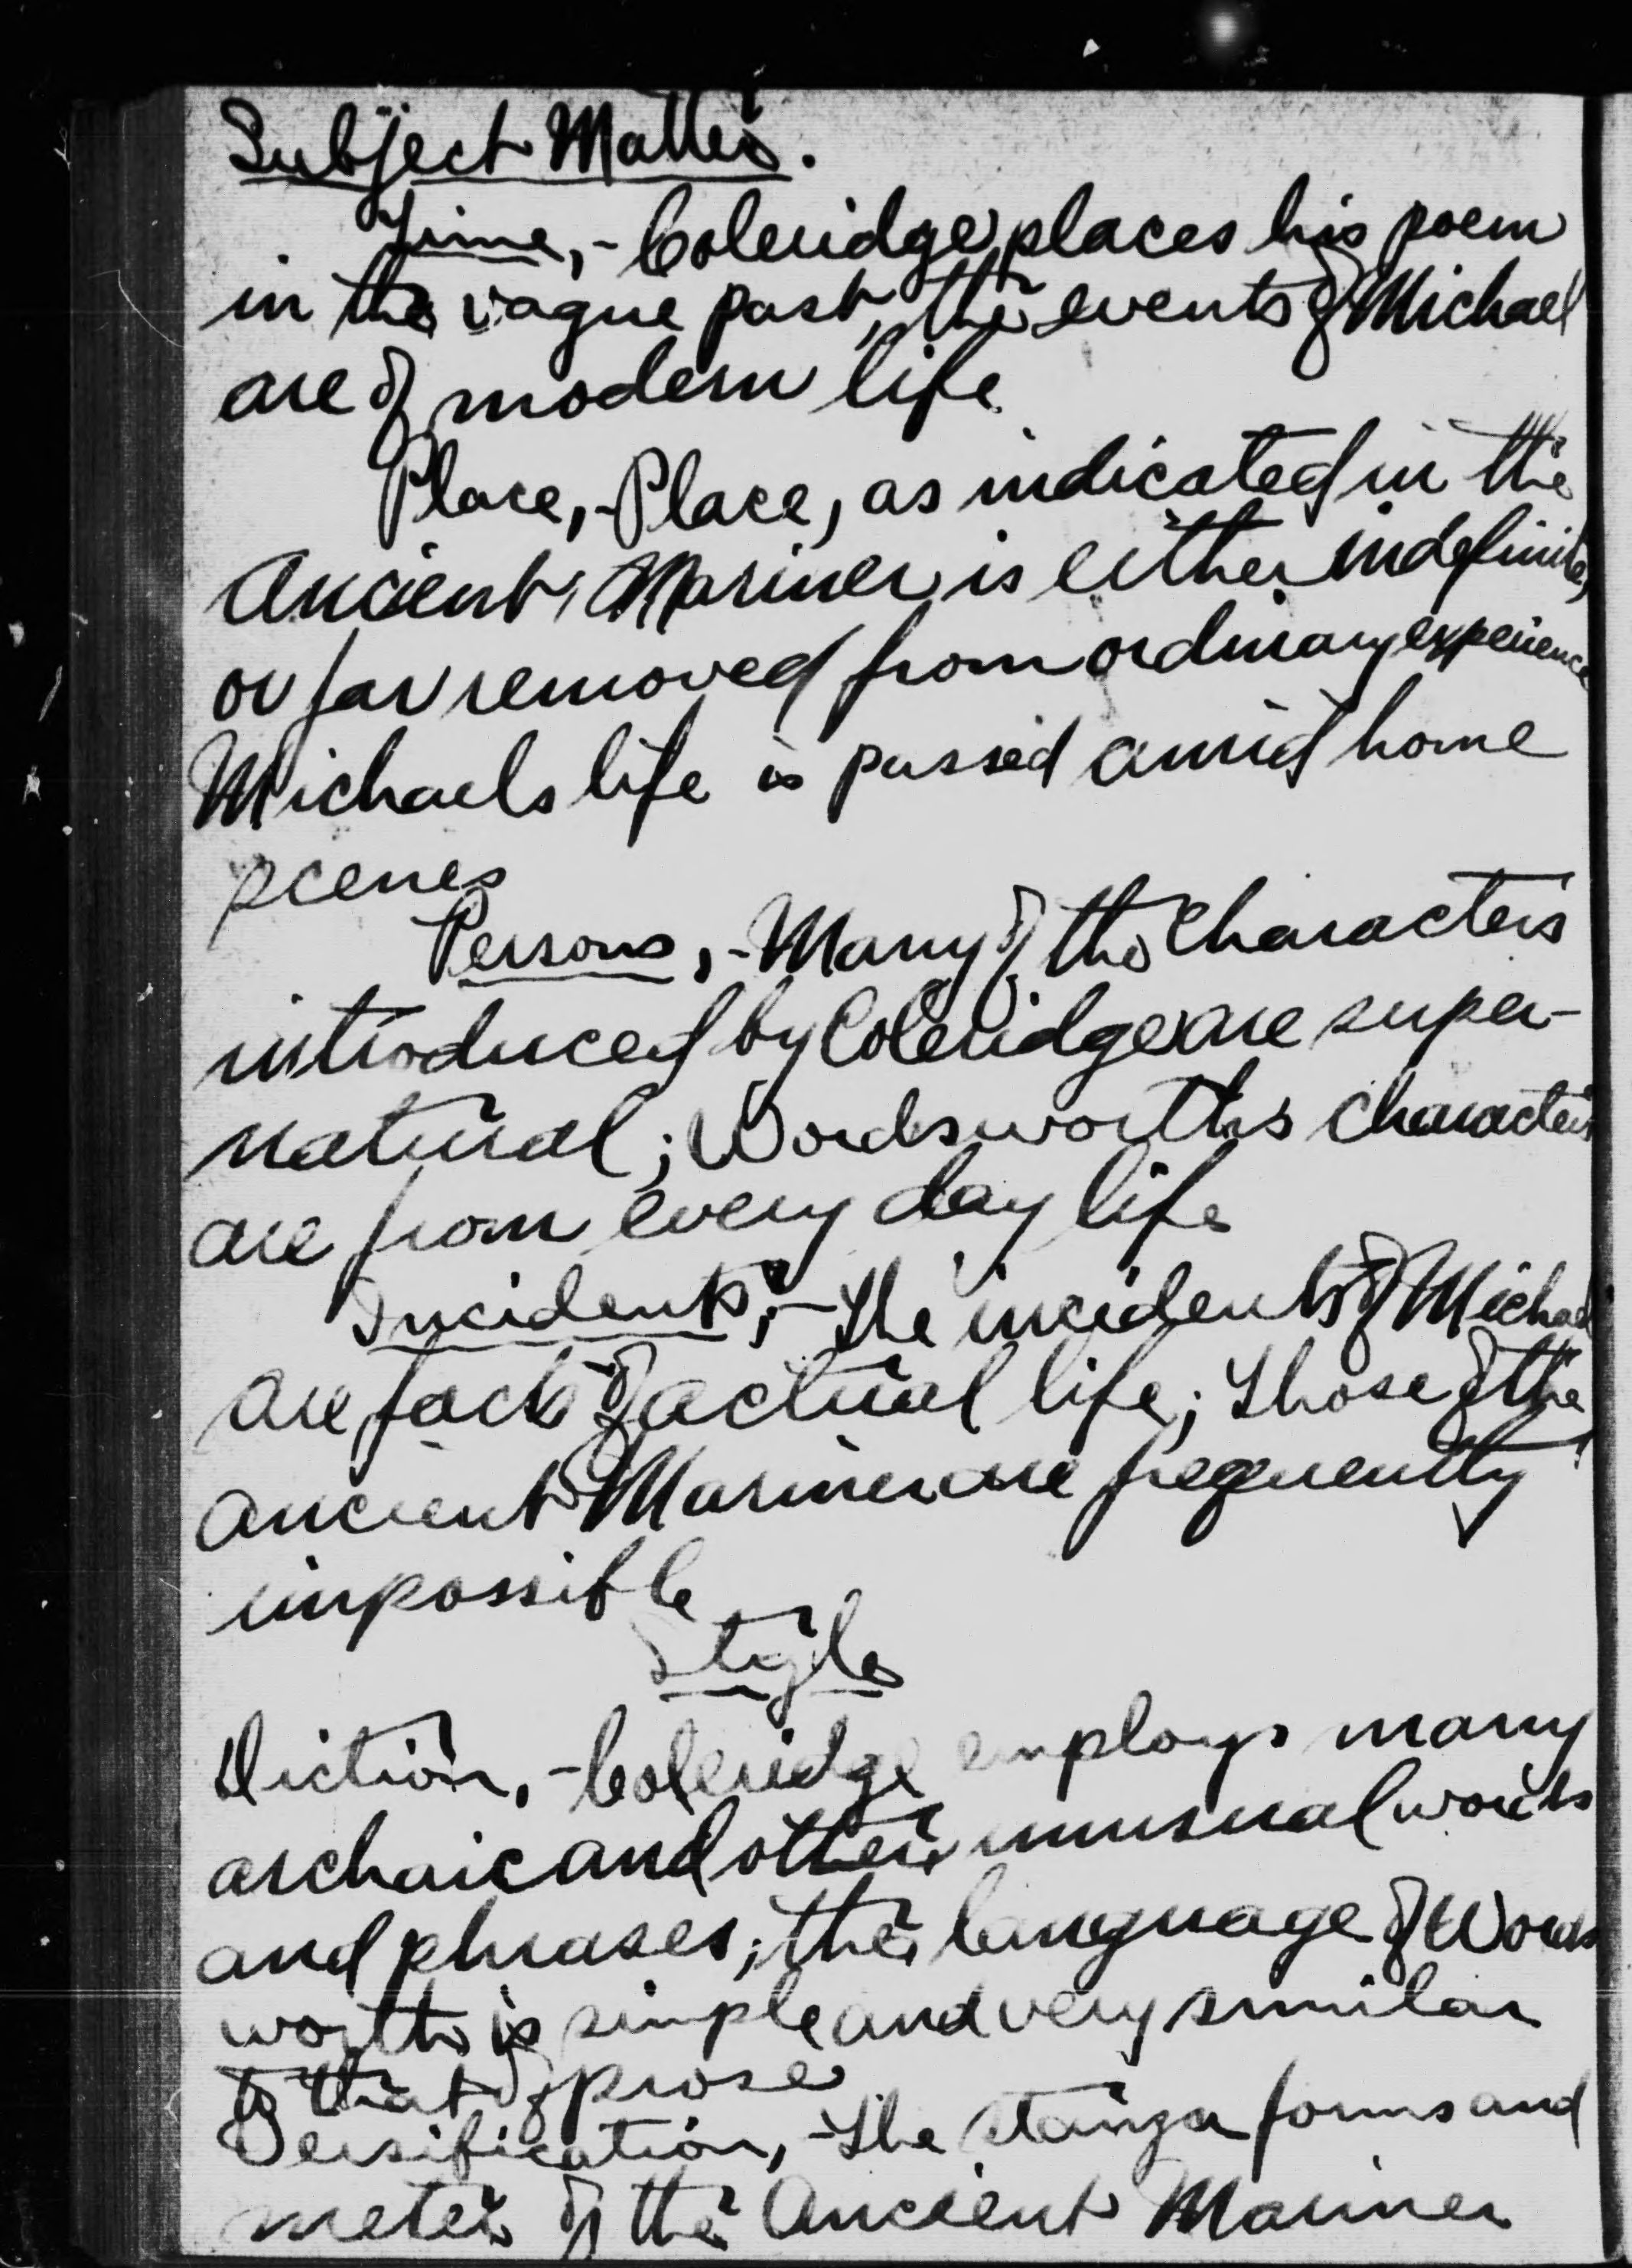 Subject Matter.
Time,- Coleridge places his poem
in the vague past, the events of Michael
are of modern life
Place,- Place, as indicated in the
Ancient Mariner is either indefinite,
or far removed from ordinary experience
Michaels life is passed amid home
scenes
Persons,- Many of the characters
introduced by Coleridge are super-
natural; Wordsworths characters
are from every day life
Incidents,- The incidents of Michael
are facts of actual life; those of the
Ancient Mariner are frequently
impossible
Style
Diction,- Coleridge employs many
archaic and other unusual words
and phrases; the language of Words
worth is simple and very similar
to that of prose
Versification,- The stanza forms and
meter of the Ancient Mariner